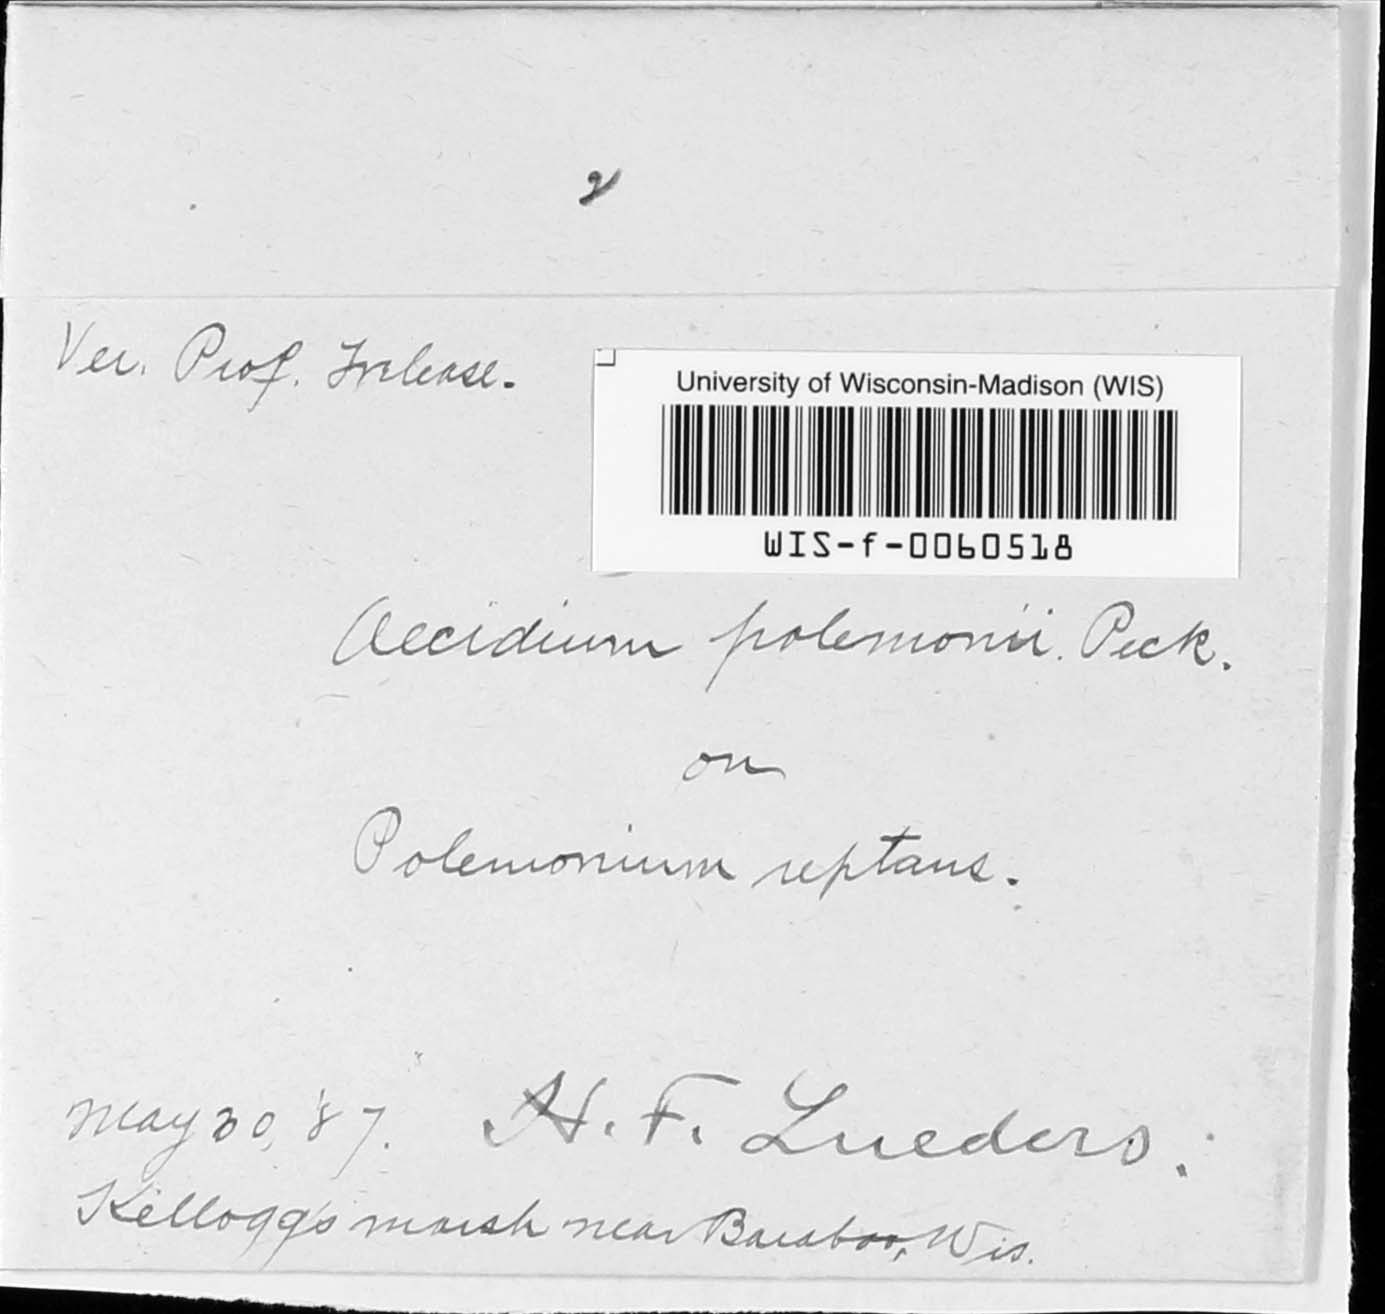 2
Ver. Prof. Trelease.
University of Wisconsin-Madison (WIS)
WIS-f-0060518
Aecidium polemonii. Peck.
on
Polemonium reptans.
May 30, '87. H. F. Lueders.
Kellogg's marsh near Baraboo, Wis.